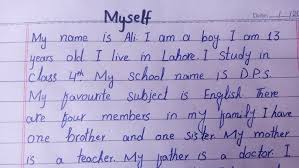 Myself
Date: / /20
My name is Ali. I am a boy. I am 13
years old. I live in Lahore. I study in
class 4th. My school name is D.P.S.
My favourite subject is English. There
are four members in my family. I have
one brother and one sister. My mother
is a teacher. My father is a doctor. I